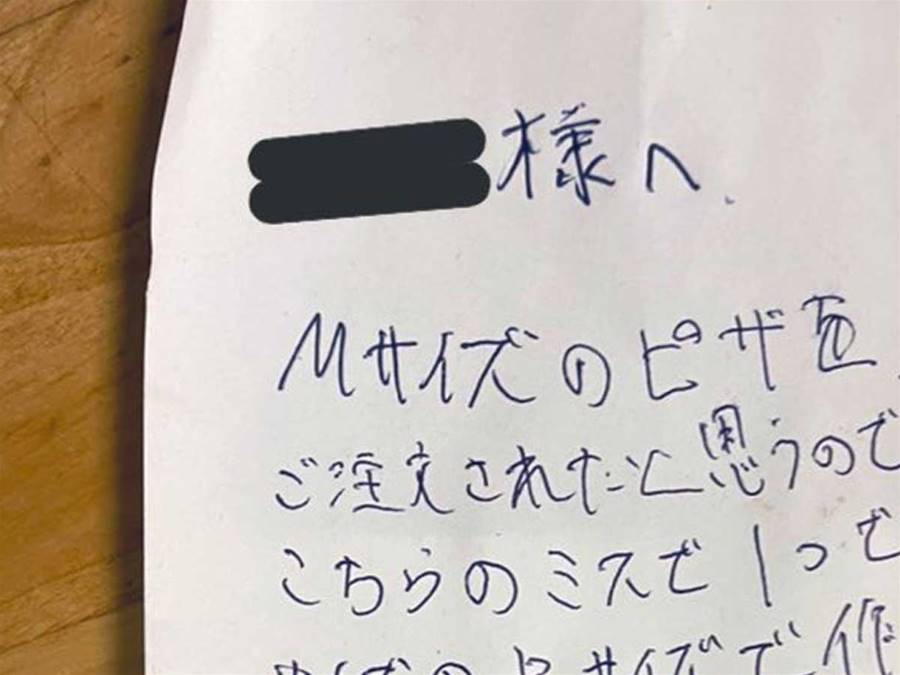 様へ.
Mサイズのピザを
ご注文されたと思うので
こちらのミスで1つで
サイズで作